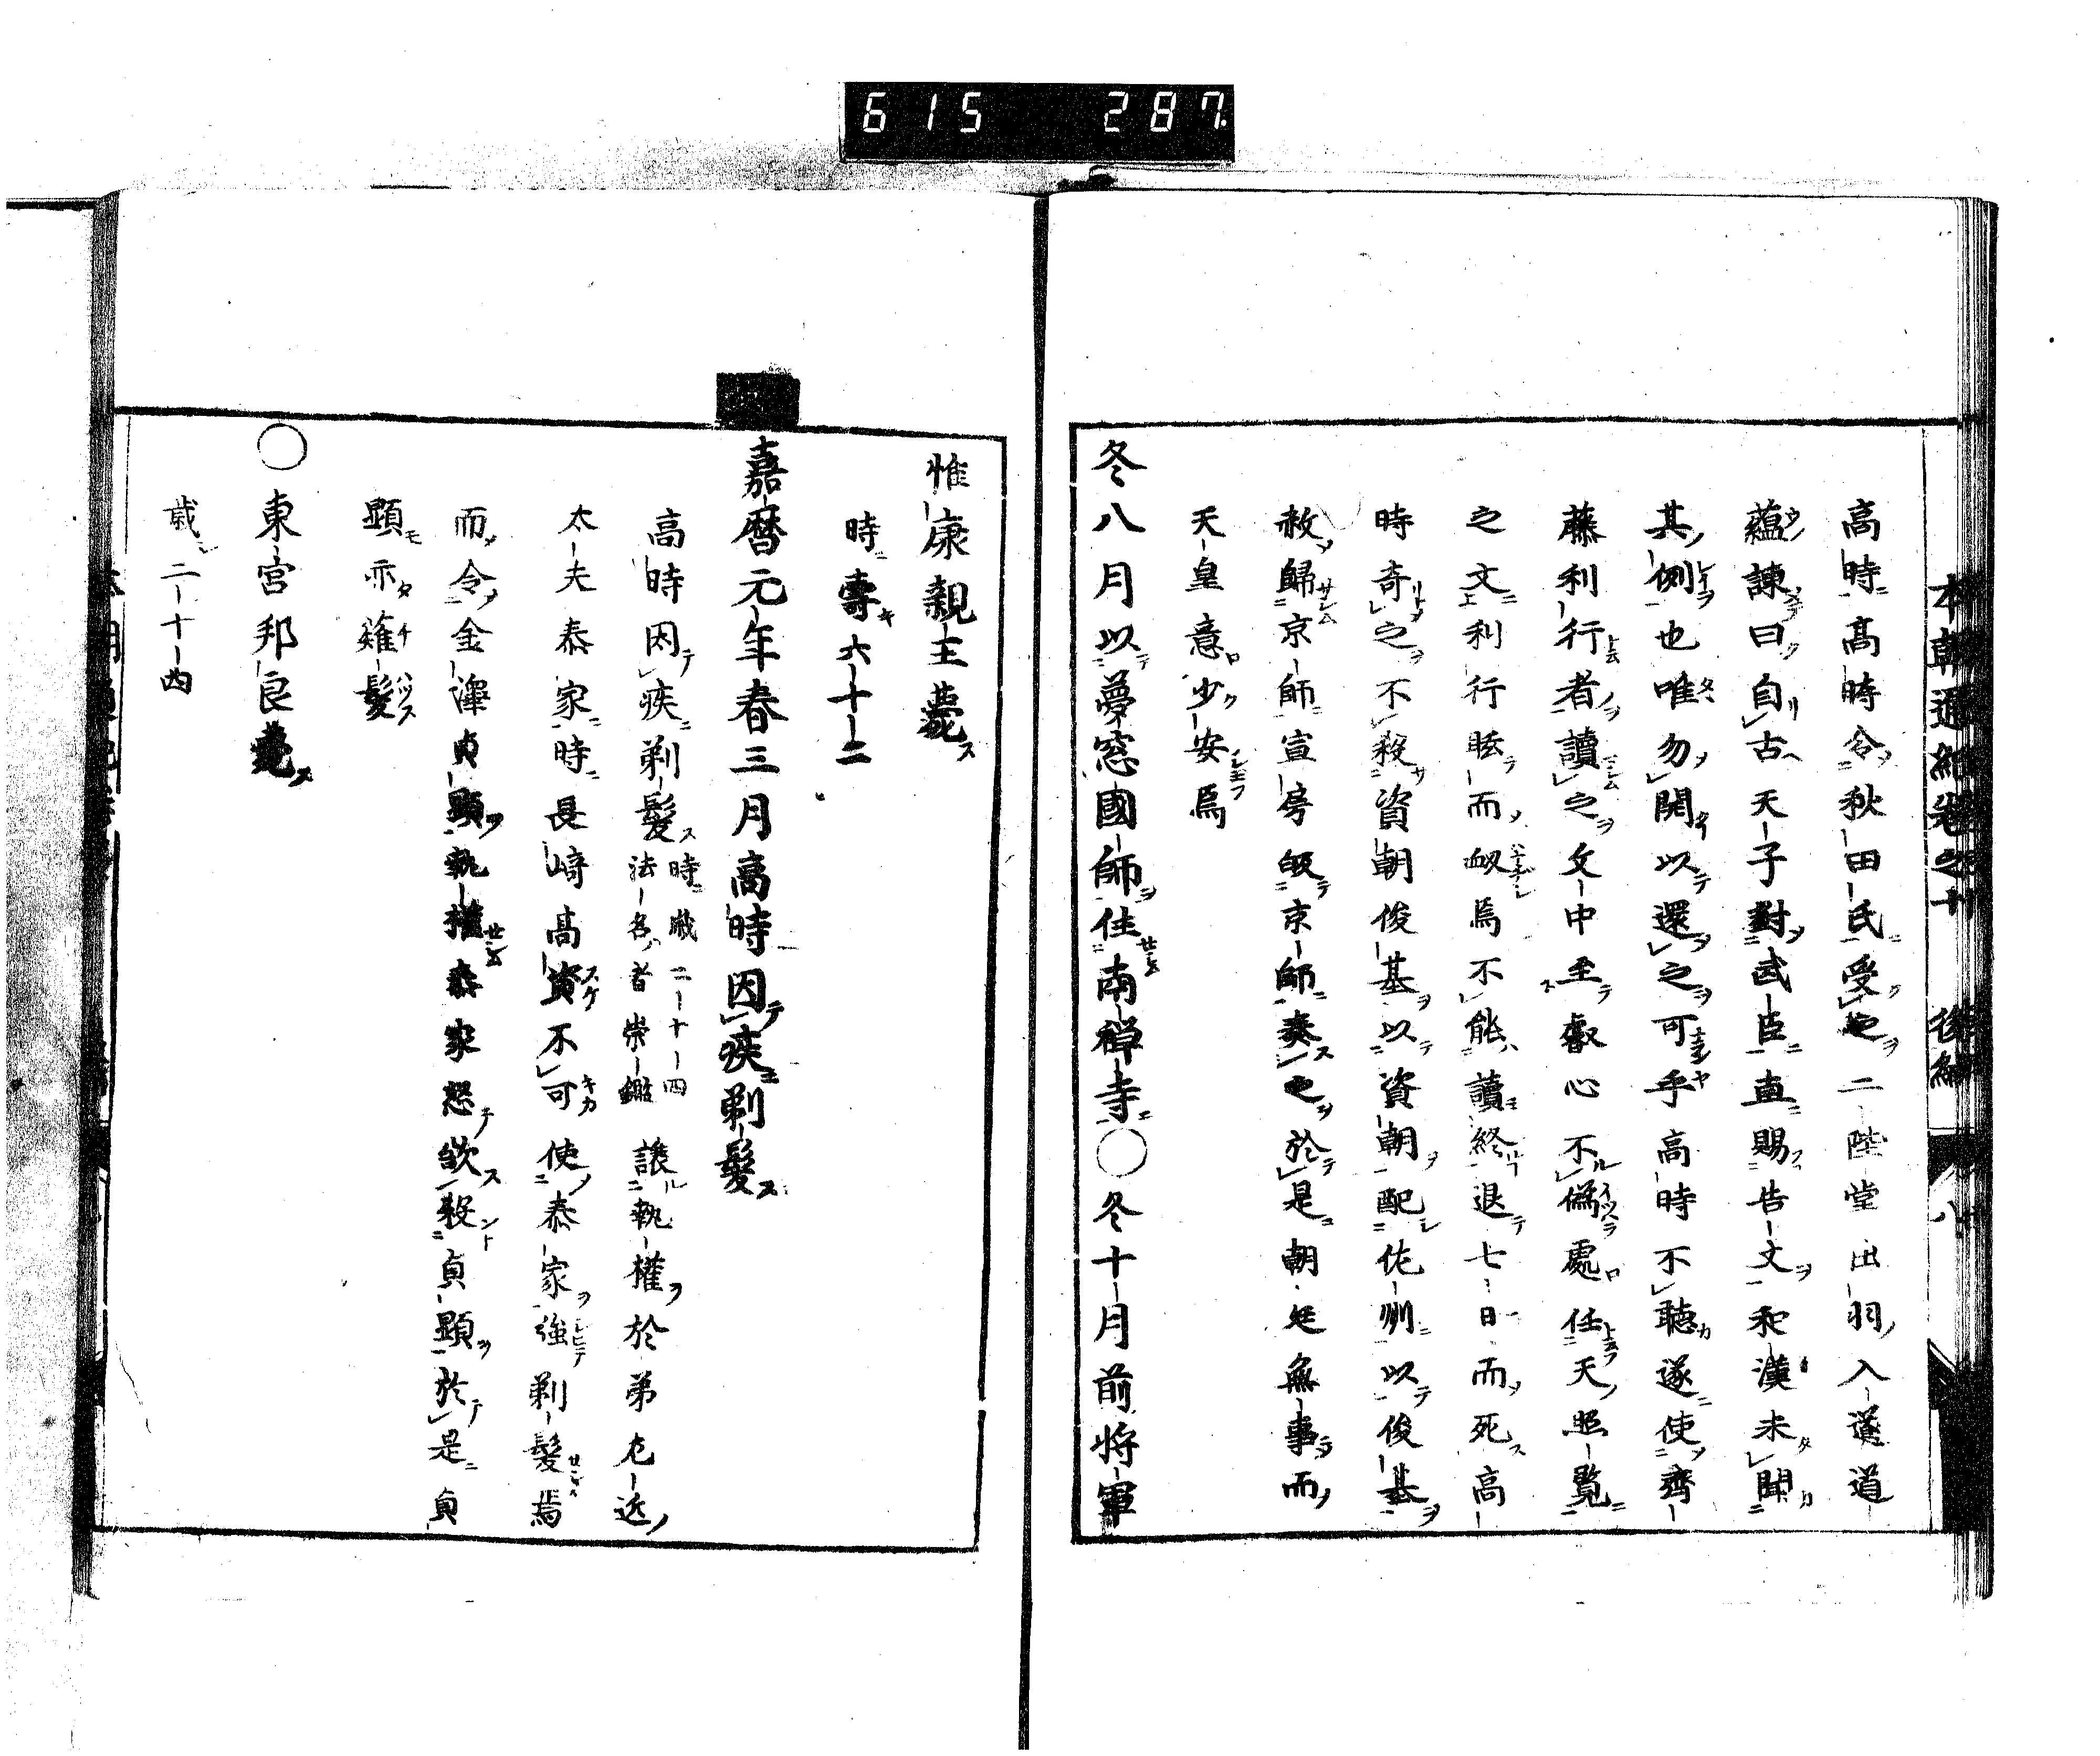 615 287.
本朝通紀卷之十 後編 八
高時高時令秋田氏受之二階堂出羽入道道
蘊諫曰自古天子對武臣直賜告文和漢未聞
其例也唯勿開以還之可乎高時不聽遂使齊
藤利行者讀之文中至叡心不僞處任天照覽
之文利行眩而衂焉不能讀終退七日而死高
時奇之不殺資朝俊基以資朝配佐州以俊基
赦歸京師宣房皈京師奏之於是朝廷無事而
天皇意少安焉
冬八月以夢窓國師住南禅寺○冬十月前将軍
惟康親王薨
時壽六十二
嘉曆元年春三月高時因疾剃髮
高時因疾剃髮時歲二十四法名者崇鑑讓執權於弟左近
太夫泰家時長崎高資不可使泰家強剃髮焉
而令金澤貞顯執權泰家怒欲殺貞顯於是貞
顯亦薙髮
○東宮邦良薨
歲二十四